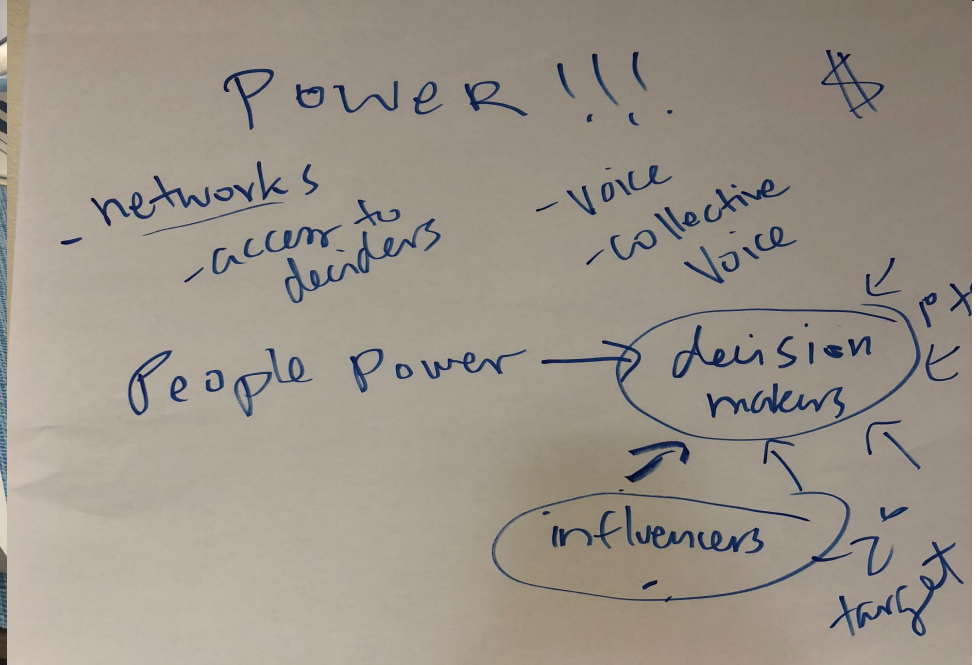 Power!!! $
- networks
- access to
deciders
- voice
- collective
voice
People Power → decision
makers
influencers
target